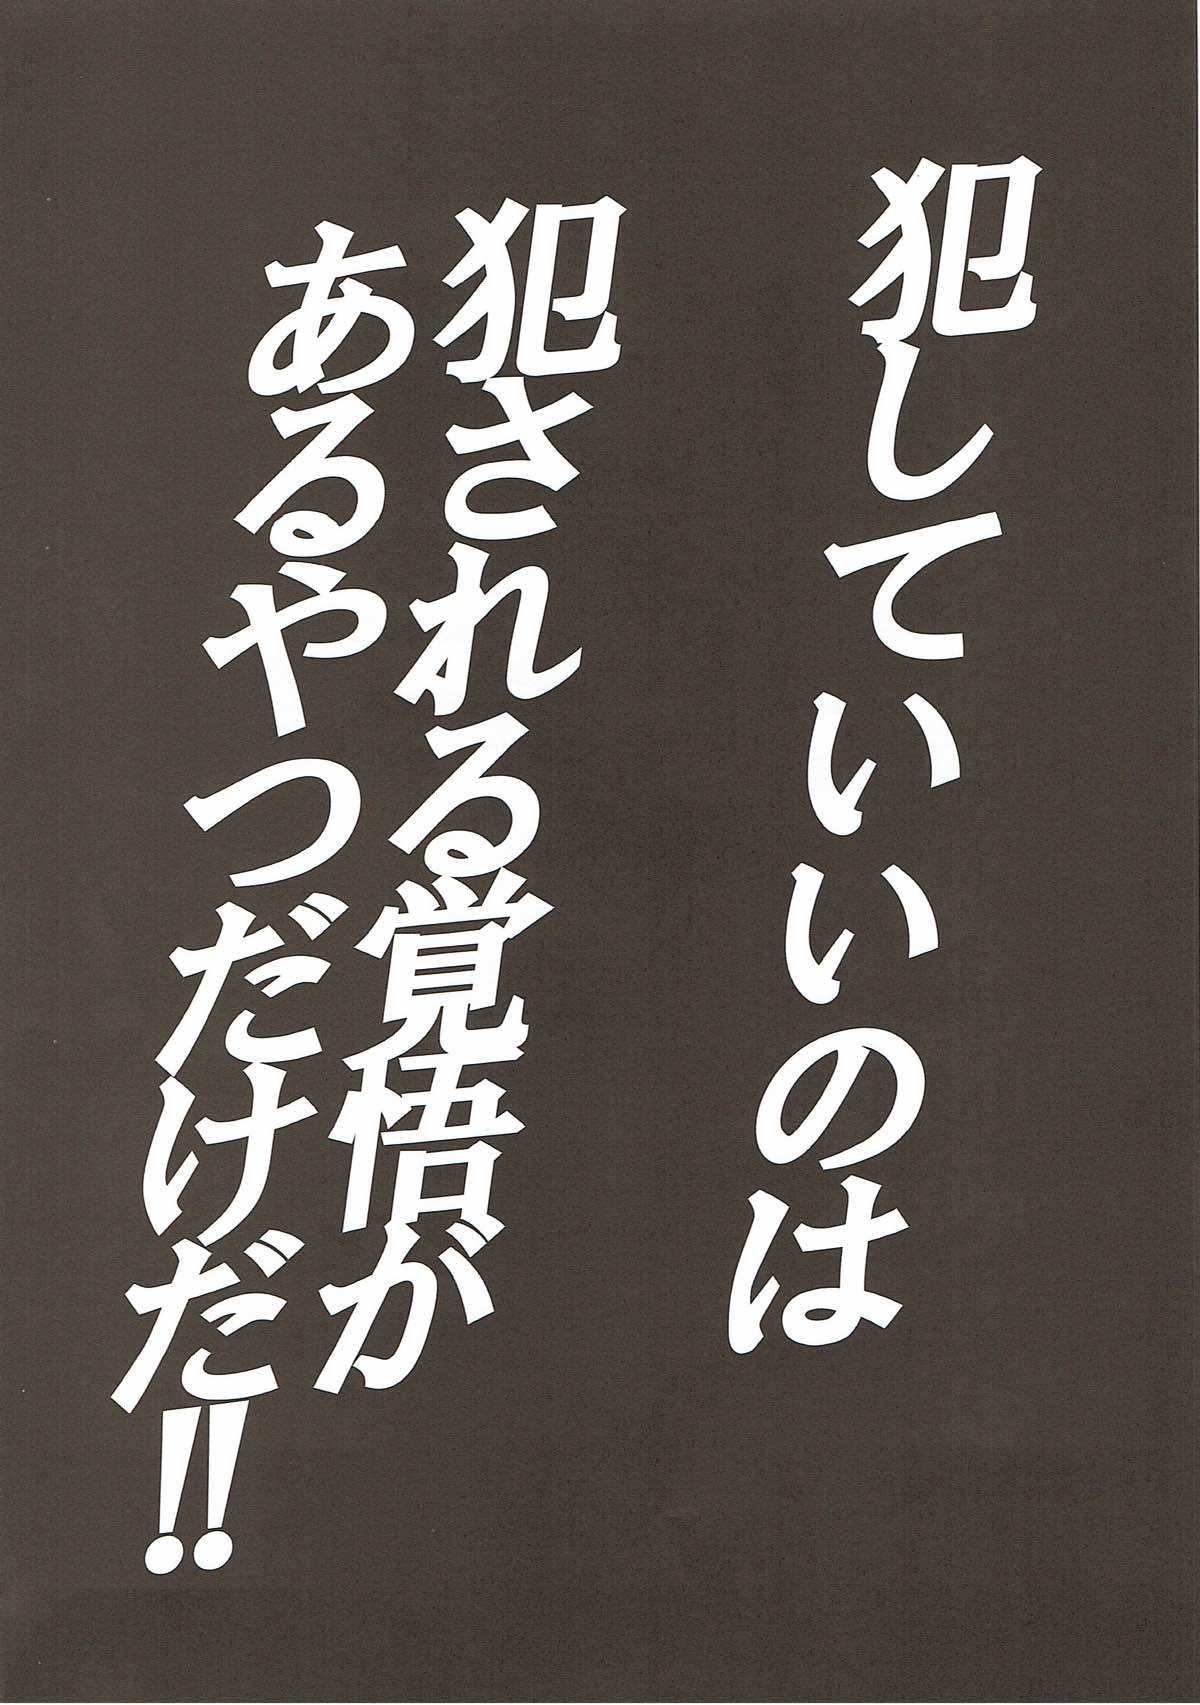 犯していいのは
犯される覚悟が
あるやつだけだ!!